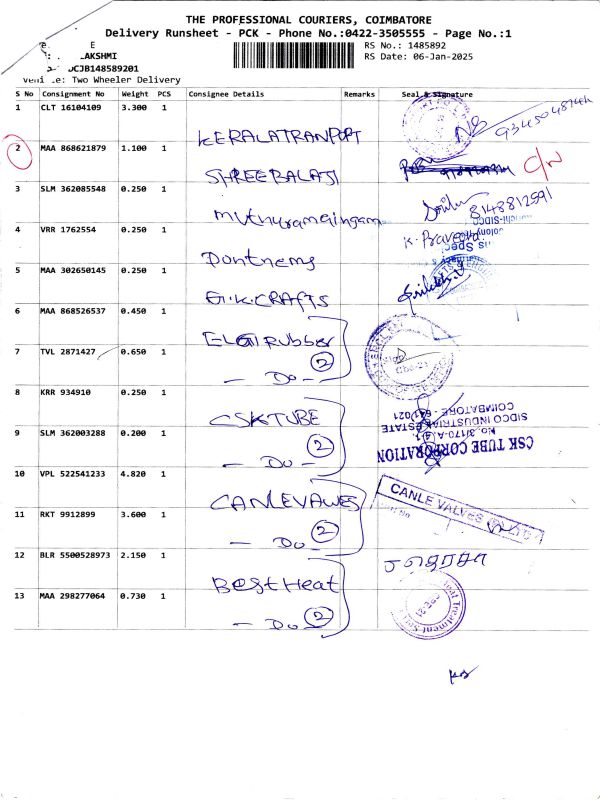 THE PROFESSIONAL COURIERS, COIMBATORE
Delivery Runsheet - PCK - Phone No.:0422-3505555 - Page No.:1
E RS No.: 1485892
LAKSHMI RS Date: 06-Jan-2025
DCJB148589201
Two Wheeler Delivery
S No Consignment No Weight PCS Consignee Details Remarks Seal & Signature
1 CLT 16104109 3.300 1 KERALATRANPORT
2 MAA 868621879 1.100 1 SHREEBALAJI C/N
3 SLM 362085548 0.250 1 muthuramalingam 8148812591
4 VRR 1762554 0.250 1 K. Praveena
5 MAA 302650145 0.250 1 G.K.CRAFTS
6 MAA 868526537 0.450 1 ELGI Rubber
7 TVL 2871427 0.650 1 — Do — 2
8 KRR 934910 0.250 1 CSKTUBE
9 SLM 362003288 0.200 1 — Do — 2
CSK TUBE CORPORATION
No. 3/170-A,
SIDCO INDUSTRIAL ESTATE
COIMBATORE - 641 021
10 VPL 522541233 4.820 1 CANLEVALVES
CANLE VALVES
11 RKT 9912899 3.600 1 — Do — 2
12 BLR 5500528973 2.150 1 Best Heat
13 MAA 298277064 0.730 1 — Do — 2